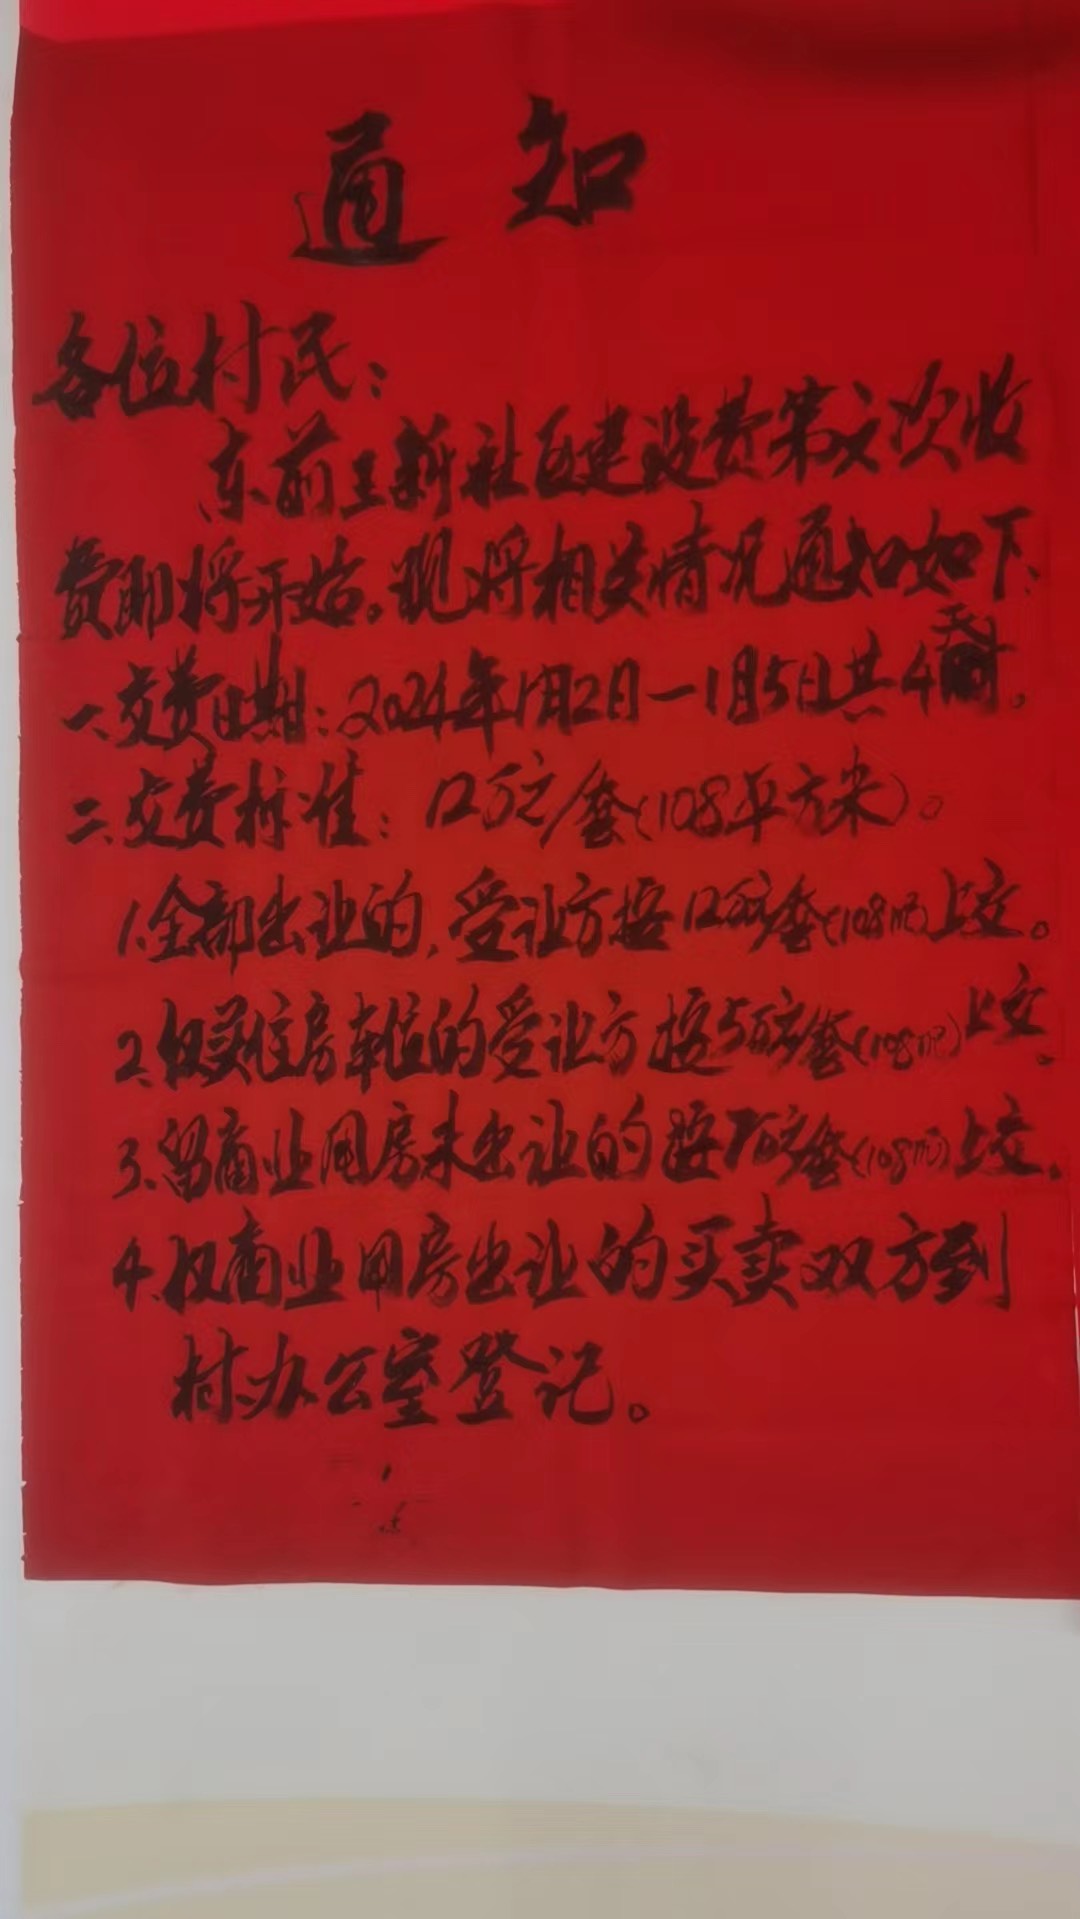 通知
各位村民:
东前王新社区建设费第六次收
费即将开始。现将相关情况通知如下:
一、交费日期:2024年1月2日—1月5日共4天。
二、交费标准:12万元/套(108平方米)。
1.全部出让的,受让方按12万元/套(108㎡)上交。
2.仅买住房车位的受让方按5万元/套(108㎡)上交。
3.留商业用房未出让的按7万元/套(108㎡)上交。
4.仅商业用房出让的买卖双方到
村办公室登记。